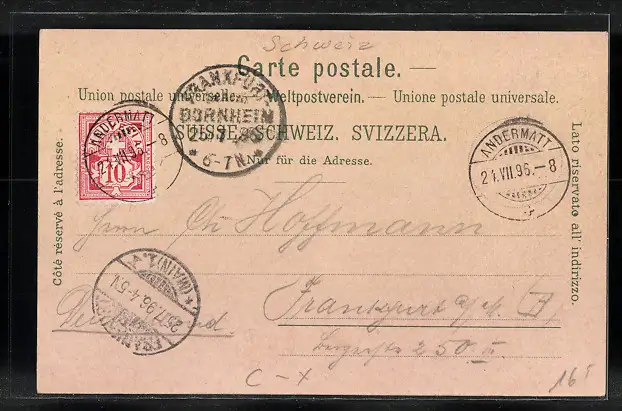 Schweiz
Carte postale. —
Union postale universelle. — Weltpostverein. — Unione postale universale.
SUISSE. SCHWEIZ. SVIZZERA.
Nur für die Adresse.
Côté réservé à l'adresse.
Lato riservato all' indirizzo.
10
ANDERMATT
21.VII.96.–8
FRANKFURT
BORNHEIM
25/7
* 6-7N *
ANDERMATT
21.VII.96.–8
Herrn Ch Hoffmann
Frankfurt a/M.
250 II
FRANKFURT
(MAIN) 1.
25.7.96.4-5N.
C – X
16⁵